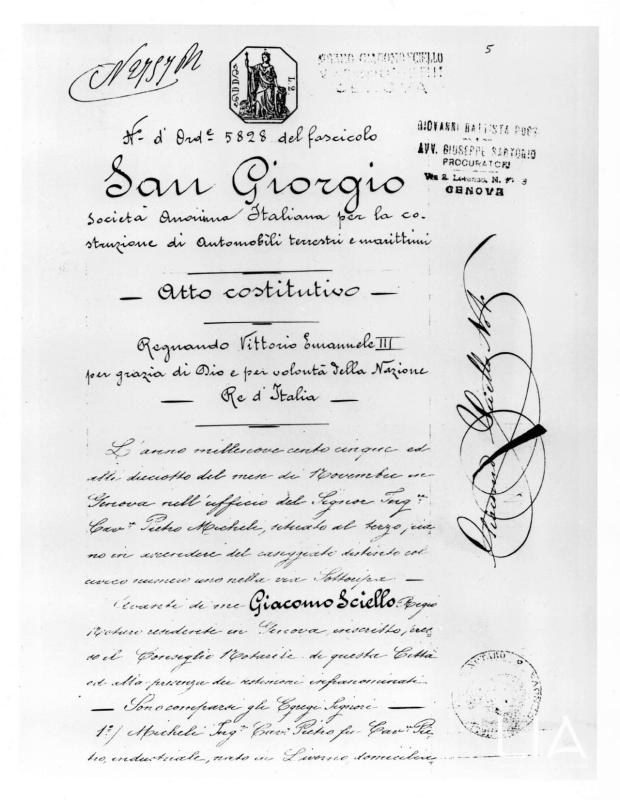 N 2757 M
5
NOTARO GIACOMO SCIELLO
GENOVA
N.º d'Ord.e 5828 del fascicolo
GIOVANNI BATTISTA
AVV. GIUSEPPE SARTORIO
PROCURATORI
Via S. Lorenzo, N.
GENOVA
San Giorgio
Società Anonima Italiana per la co-
struzione di Automobili terrestri e marittimi
— Atto costitutivo —
Regnando Vittorio Emanuele III
per grazia di Dio e per volontà della Nazione
— Re d'Italia —
L'anno millenove cento cinque ed
alli dieciotto del mese di Novembre in
Genova nell'ufficio del Signor Ing.re
Cav.re Pietro Micheli, situato al terzo, pia-
no in ascendere del caseggiato distinto col
civico numero uno nella via Sottoripa —
Avanti di me Giacomo Sciello Regio
Notaro residente in Genova, inscritto, pres-
so il Consiglio Notarile di questa Città
ed alla presenza dei testimoni infranominati
— Sono comparsi gli Egregi Signori —
1º/ Micheli Ing.re Cav.re Pietro fu Cav.re Pie-
tro, industriale, nato in Livorno domicilia-
Giacomo Sciello Not.
NOTARO
LIA